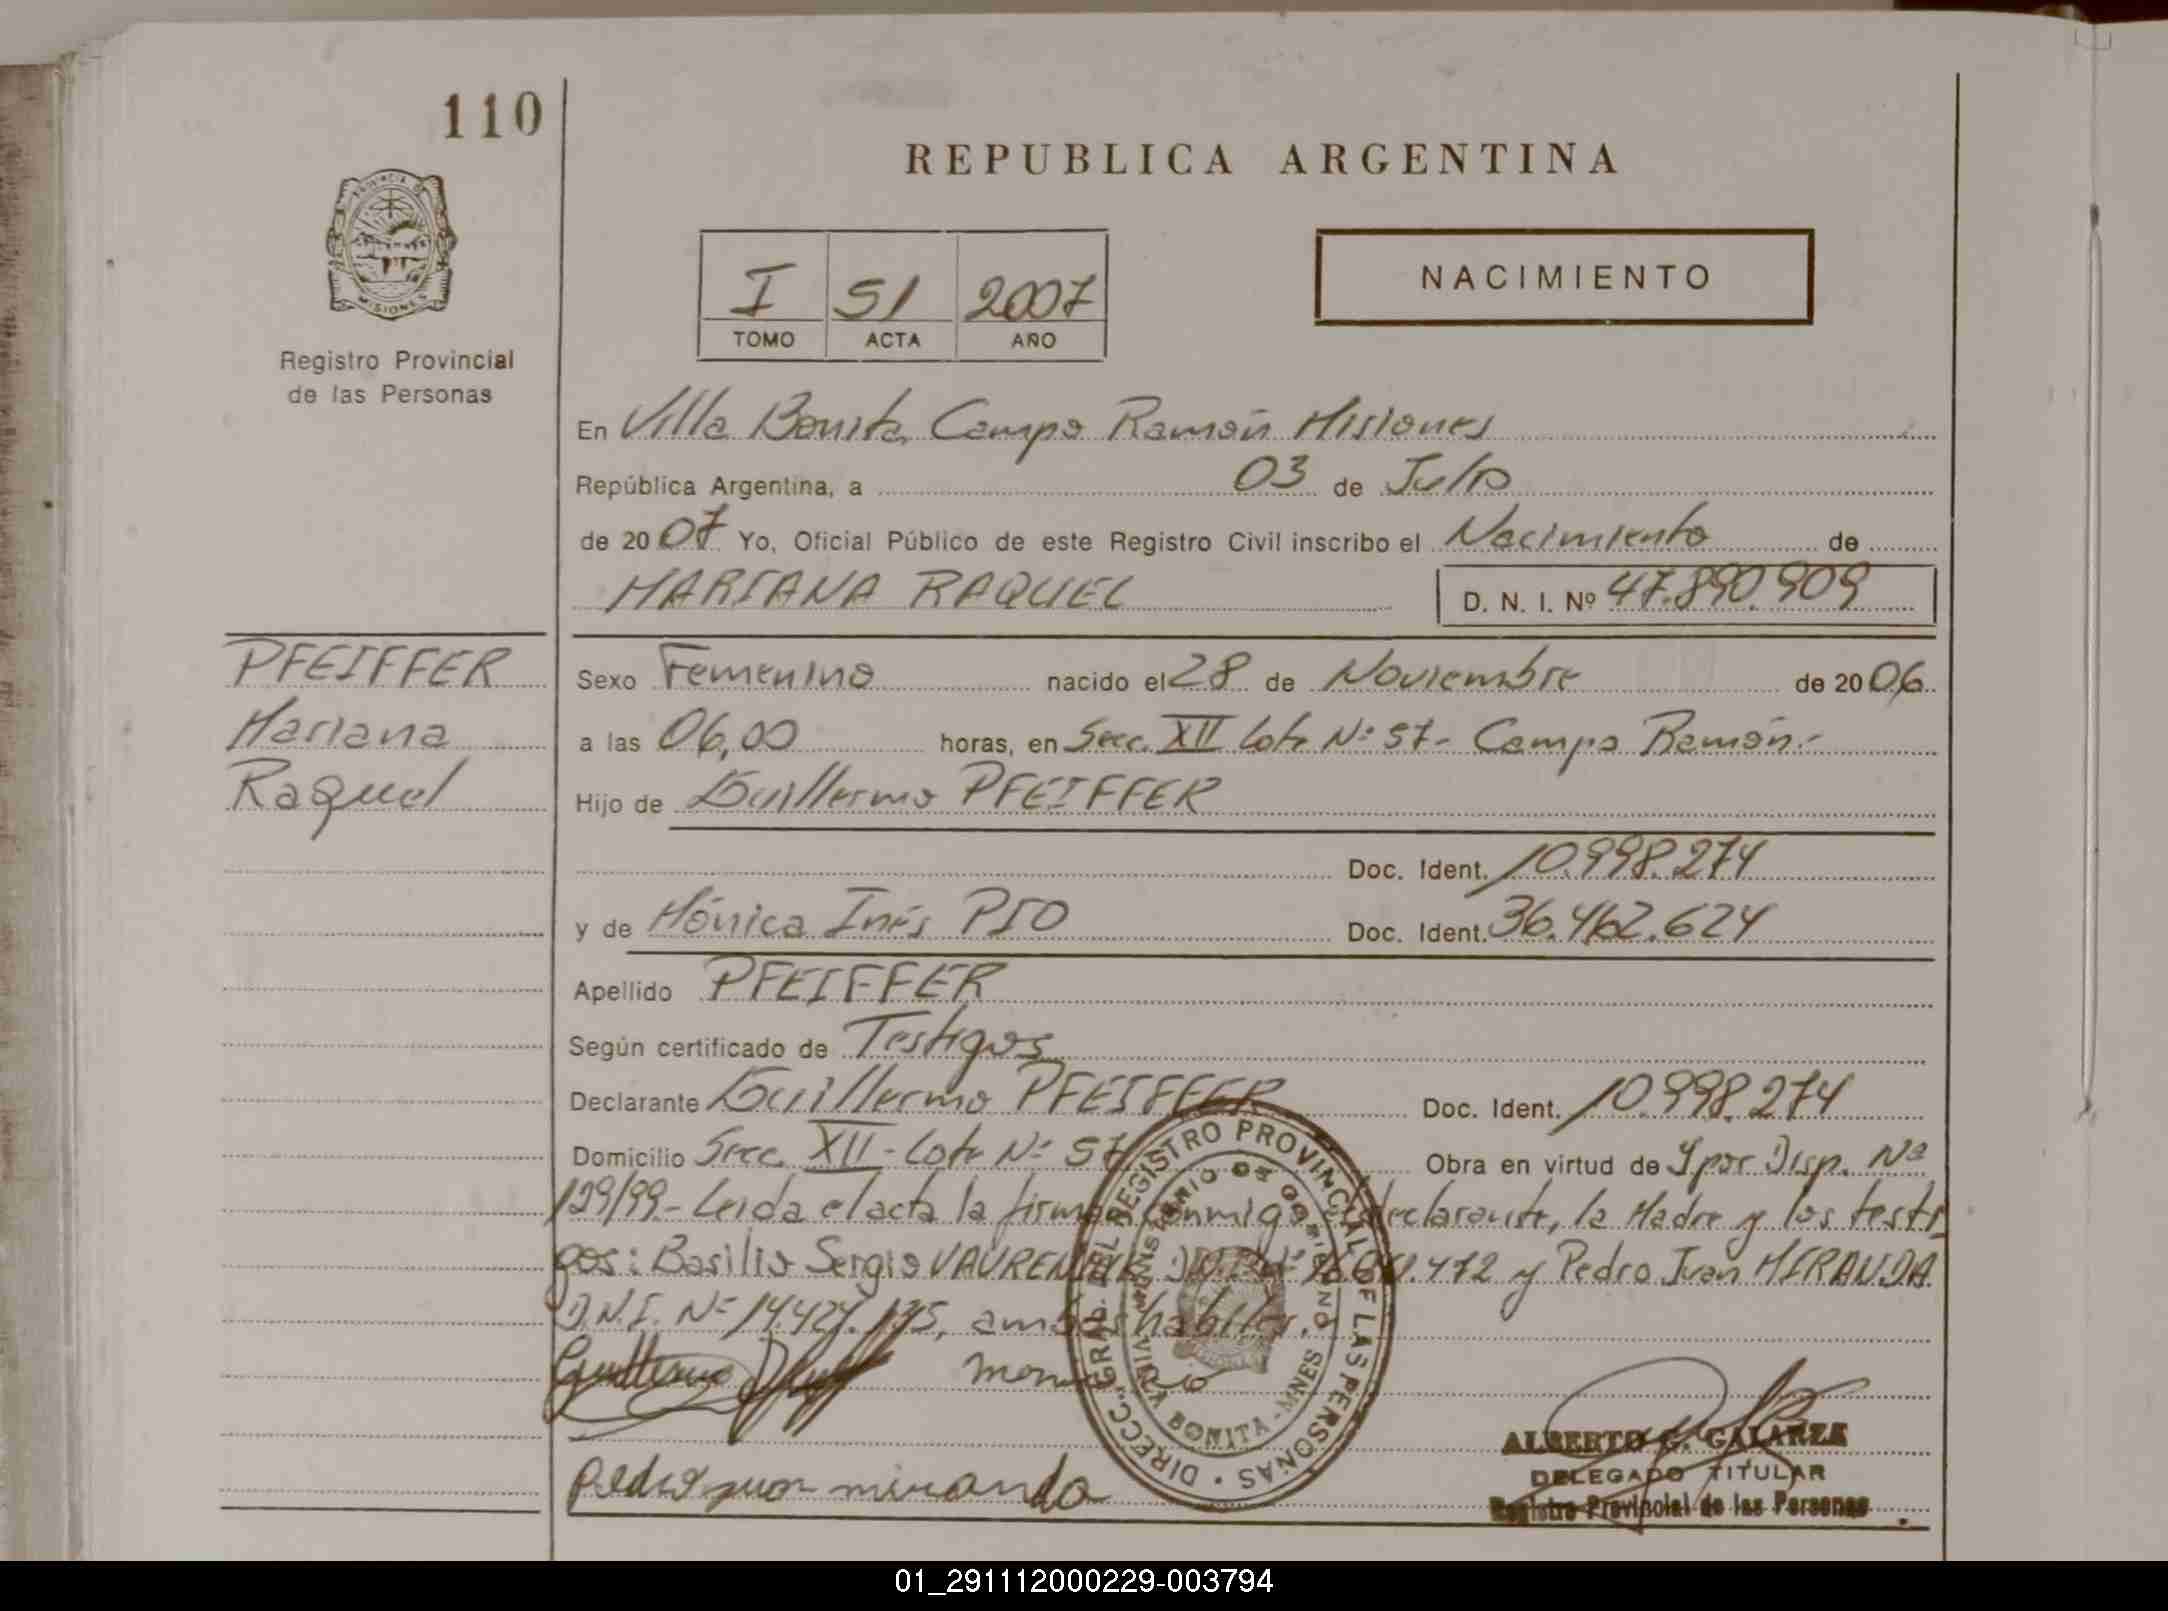 110
REPUBLICA ARGENTINA
PROVINCIA DE MISIONES
Registro Provincial
de las Personas
I 51 2007
TOMO ACTA AÑO
NACIMIENTO
En Villa Bonita Campo Ramón Misiones
República Argentina, a 03 de Julio
de 2007 Yo, Oficial Público de este Registro Civil inscribo el Nacimiento de
MARIANA RAQUEL D. N. I. Nº 47.890.909
PFEIFFER
Mariana
Raquel
Sexo Femenino nacido el 28 de Noviembre de 2006
a las 06,00 horas, en Secc. XII Lote Nº 57- Campo Ramón.-
Hijo de Guillermo PFEIFFER
Doc. Ident. 10.998.274
y de Mónica Inés PIO Doc. Ident. 36.462.624
Apellido PFEIFFER
Según certificado de Testigos
Declarante Guillermo PFEIFFER Doc. Ident. 10.998.274
Domicilio Secc. XII - Lote Nº 57 Obra en virtud de Y por Disp. Nº
129/99.- Leida el acta la firman conmigo el declarante, la Madre y los testi
gos: Basilio Sergio D.N.I. Nº .472 y Pedro Juan MIRANDA
D.N.I. Nº 14.424. ambos habiles.
Pedro juan miranda
DIRECC. GRAL. DEL REGISTRO PROVINCIAL DE LAS PERSONAS
MINISTERIO DE GOBIERNO
VILLA BONITA - MNES
ALBERTO G. GALARZA
DELEGADO TITULAR
Registro Provincial de las Personas
01_291112000229-003794